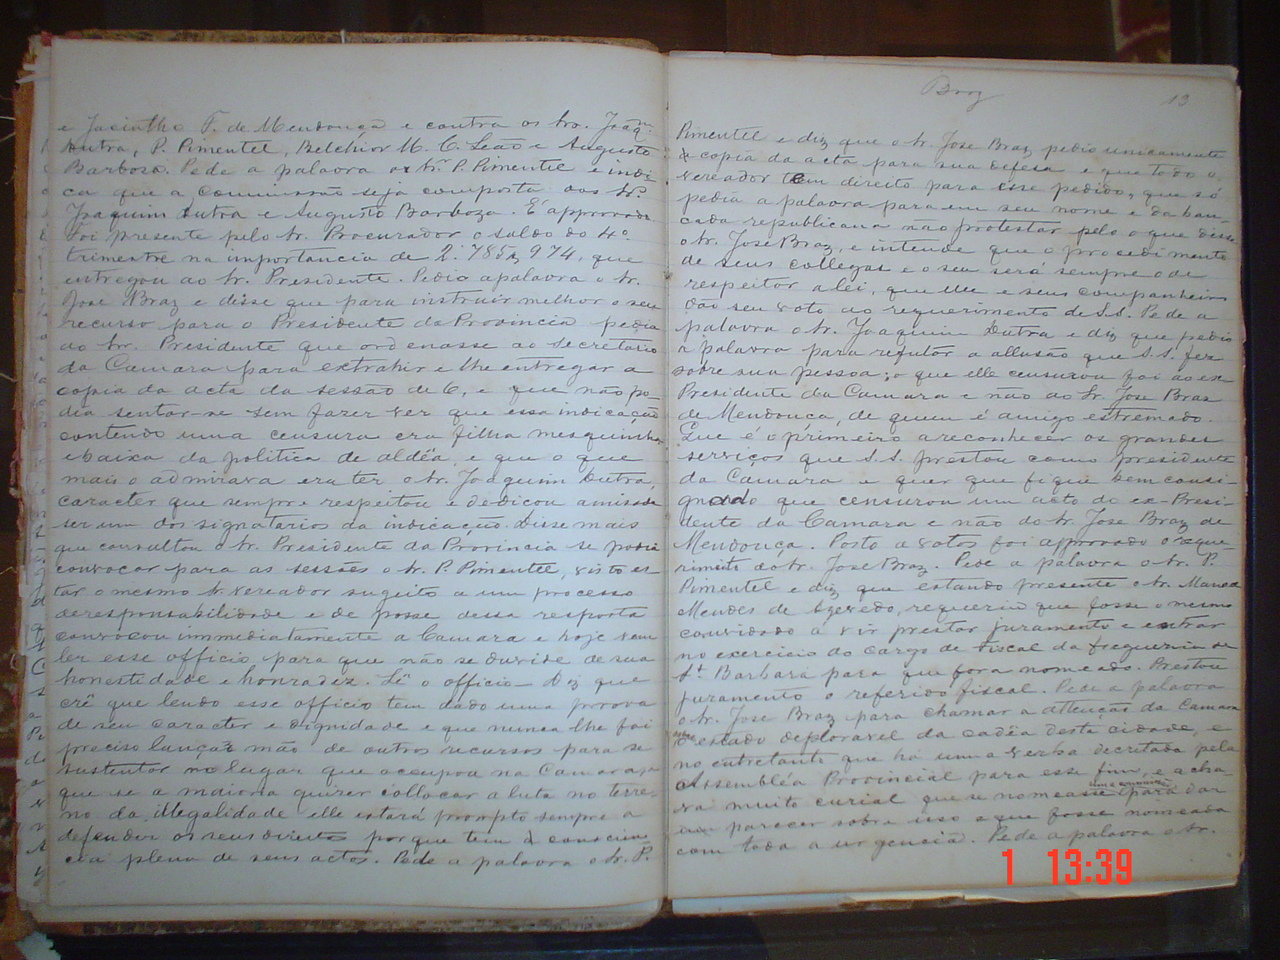 e Jacintho F. de Mendonça e contra os srs. Joaqm.
Dutra, P. Pimentel, Belchior M. C. Leão e Augusto
Barboso. Pede a palavra o Sr. P. Pimentel e indi
ca que a Commissão seja composta dos Srs.
Joaquim Dutra e Augusto Barboza. É approvado
Foi presente pelo Sr. Procurador o saldo do 4º
trimestre na importancia de 2:785$974, que
entregou ao Sr. Presidente. Pedio a palavra o Sr.
José Braz e disse que para instruir melhor o seu
recurso para o Presidente da Provincia pedia
ao Sr. Presidente que ordenasse ao secretario
da Camara para extrahir e lhe entregar a
copia da acta da sessão de 6, e que não po-
dia sentar-se sem fazer ver que essa indicação
contendo uma censura era filha mesquinha
e baixa da politica de aldêa, e que o que
mais o admirava era ter o Sr. Joaquim Dutra,
caracter que sempre respeitou e dedicou amisade
ser um dos signatarios da indicação. Disse mais
que consultou o Sr. Presidente da Provincia se podia
convocar para as sessões o Sr. P. Pimentel, visto es
tar o mesmo Sr. vereador sugeito a um processo
de responsabilidade e de posse dessa resposta
convocou immediatamente a Camara e hoje vem
ler esse officio para que não se duvide de sua
honestidade e honradez. Lê o officio – Diz que
crê que lendo esse officio tem dado uma prova
de seu caracter e dignidade e que nunca lhe foi
preciso lançar mão de outros recursos para se
sustentar no lugar que occupou na Camara,
que se a maioria quizer collocar a luta no terre-
no da illegalidade elle estará prompto sempre a
defender os seus direitos porque tem a conscien-
cia plena de seus actos. Pede a palavra o Sr. P.
Braz
13
Pimentel e diz que o Sr. José Braz pedio unicamente
a copia da acta para sua defesa e que todo o
vereador tem direito para esse pedido, que só
pedia a palavra para em seu nome e da ban-
cada republicana não protestar pelo o que disse
o Sr. José Braz, e intende que o procedimento
de seus collegas e o seu será sempre o de
respeitor a lei, que elle e seus companheiros
dão seu voto ao requerimento de S.S. Pede a
palavra o Sr. Joaquim Dutra e diz que pedio
a palavra para refutar a allusão que S.S. fez
sobre sua pessoa; o que elle censurou foi ao ex
Presidente da Camara e não ao Sr. José Braz
de Mendonça, de quem é amigo estremado.
Que é o primeiro a reconhecer os grandes
serviços que S.S. prestou como presidente
da Camara e quer que fique bem consi-
gnado que censurou um acto do ex-Presi-
dente da Camara e não do Sr. José Braz de
Mendonça. Posto a votos foi approvado o reque-
rimento do Sr. José Braz. Pede a palavra o Sr. P.
Pimentel e diz que estando presente o Sr. Manoel
Mendes de Azevedo, requeria que fosse o mesmo
convidado a vir prestar juramento e entrar
no exercicio do cargo de fiscal da freguezia de
Sta. Barbara para que fora nomeado. Prestou
juramento o referido fiscal. Pede a palavra
o Sr. José Braz para chamar a attenção da Camara
o estado deploravel da cadêa desta cidade, e
no entretanto que há uma verba decretada pela
Assembléa Provincial para esse fim, e acha
va muito curial que se nomeasse uma commissão para dar
parecer sobre isso e que fosse nomeada
com toda a urgencia. Pede a palavra o Sr.
1 13:39